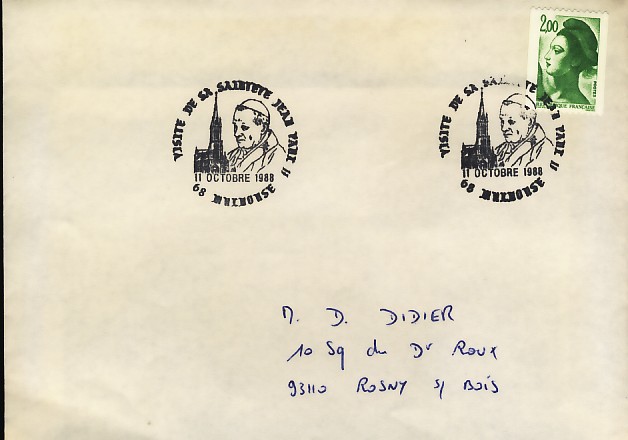 2,00
REPUBLIQUE FRANCAISE
POSTES
VISITE DE SA SAINTETE JEAN PAUL II
11 OCTOBRE 1988
68
VISITE DE SA SAINTETE JEAN PAUL II
11 OCTOBRE 1988
68
M. D. DIDIER
10 Sq du Dr Roux
93110 ROSNY s/ BOIS